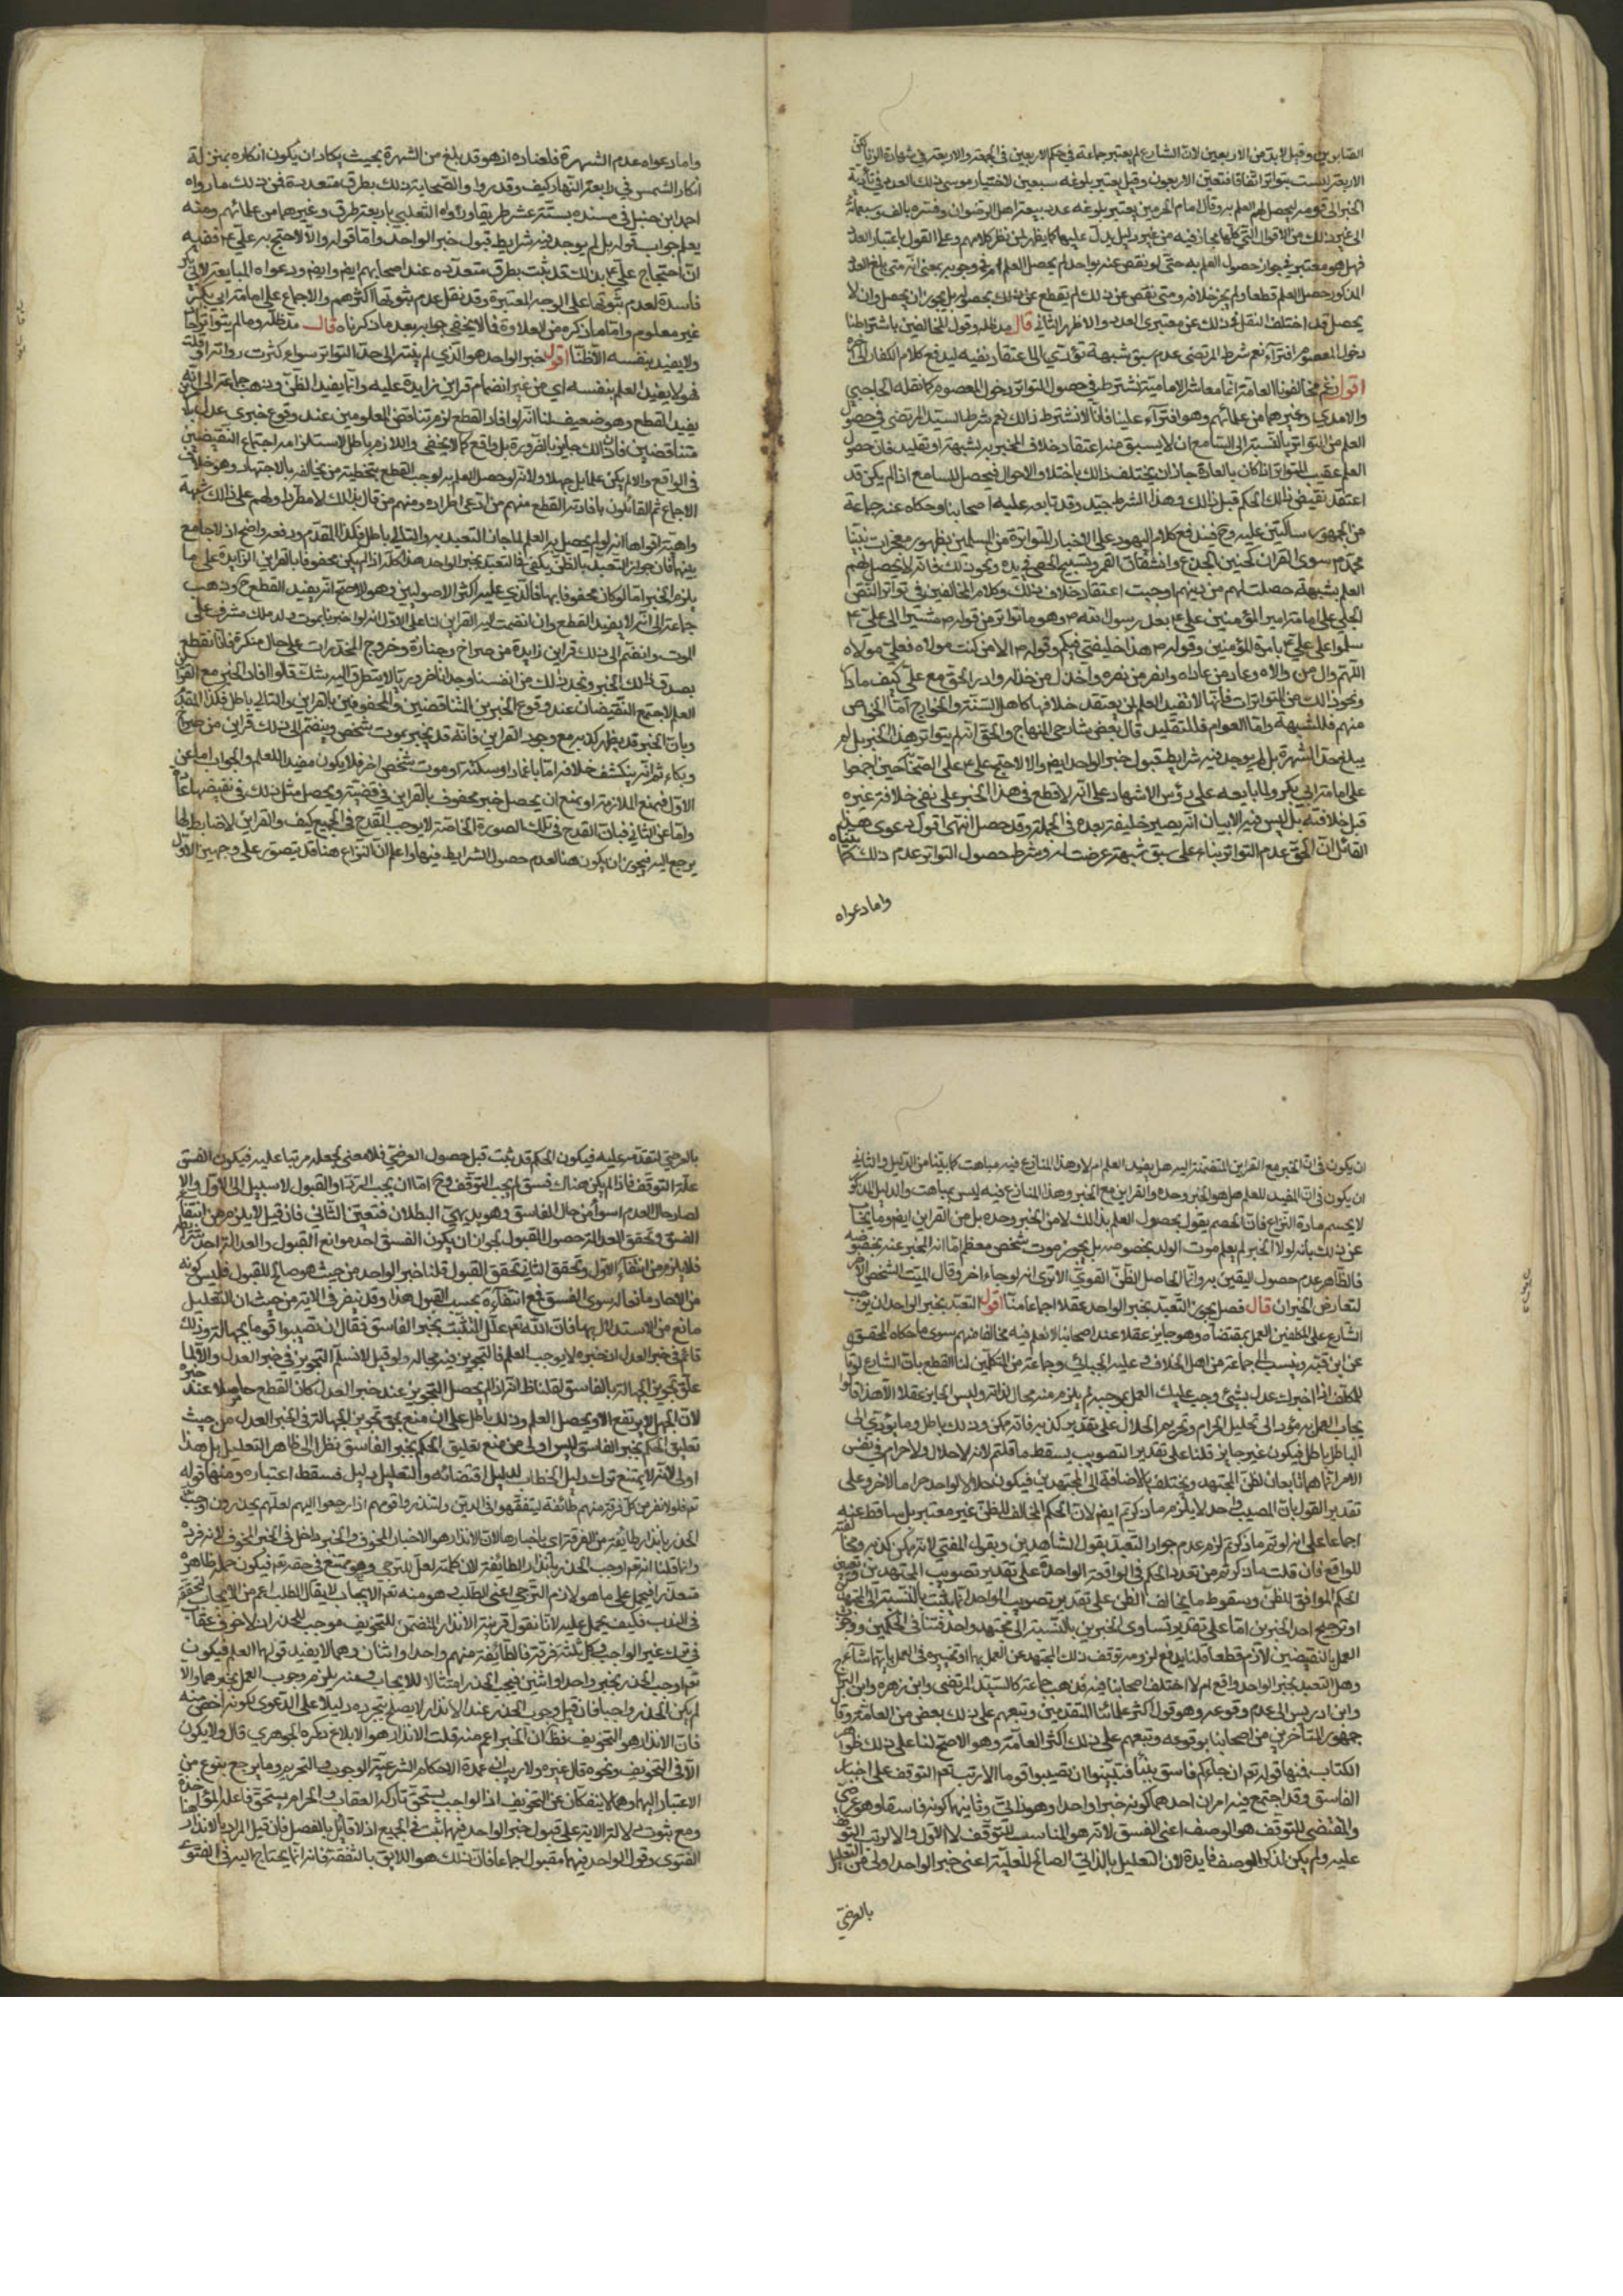 الصابوني وقيل لابد من الاربعين لان الشارع لم يعتبر جماعة في حكم الاربعين في الجمعة والاربعة في شهادة الزنا
الاربعة ليست بتواتر اتفاقا فتعين الاربعون وقيل يعتبر بلوغه سبعين لاختيار موسى ذلك العدد في تأدية
الخبر الى قومه ليحصل لهم العلم به وقال امام الحرمين يعتبر بلوغه عدد بيعة اهل الرضوان وفسره بالف وسبعمائة
الى غير ذلك من الاقوال التي كلها مجازفة من غير دليل يدل عليها كما يظهر لمن نظر كلامهم وعلى القول باعتبار العدد
فهل هو معتبر حصول العلم به حتى لو نقص عنه بواحد لم يحصل العلم بمعنى انه متى بلغ العدد
المذكور حصل العلم قطعا ولم يجز خلافه ومتى نقص عن ذلك لم يقطع عن ذلك بحصوله بل يجوز ان يحصل وان لا
يحصل قد اختلف النقل في ذلك عن معتبري العدد والاظهر الثاني قال مد ظله وقول المخالفين باشتراطنا
دخول المعصوم افتراء نعم شرط المرتضى عدم سبق شبهة تؤدي الى اعتقاد نفيه ليدفع كلام الكفار الى آخره
اقول زعم مخالفونا العامة انما معاشر الامامية نشترط في حصول المتواتر دخول المعصوم كما نقله الحاجبي
والامدي وغيرهما من علمائهم وهو افتراء علينا فانا لا نشترط ذلك نعم شرط السيد المرتضى في حصول
العلم من التواتر بالنسبة الى السامع ان لا يسبق منه اعتقاد خلاف المخبر به بشبهة او تقليد فان حصول
العلم عقيب المتواتر اذا كان بالعادة جاز ان يختلف ذلك باختلاف الاحوال فيحصل للسامع اذا لم يكن قد
اعتقد نقيض ذلك الحكم قبل ذلك وهذا الشرط جيد وقد تابعه عليه اصحابنا وحكاه عنه جماعة
من الجمهور ساكتين عليه وح فندفع كلام اليهود على الاخبار المتواترة من المسلمين بظهور معجزات نبينا
محمد ص سوى القرآن كحنين الجذع وانشقاق القمر وتسبيح الحصى في يده ونحو ذلك فانه لا يحصل لهم
العلم بشبهة حصلت لهم من دينهم اوجبت اعتقاد خلاف ذلك وكلام المخالفين في تواتر النص
الجلي على امامة امير المؤمنين علي ع بعد رسول الله ص وهو ما تواتر من قوله ص مشيرا الى علي ع
سلموا على علي ع بامرة المؤمنين وقوله ص هذا خليفتي فيكم وقوله ص الا من كنت مولاه فعلي مولاه
اللهم وال من والاه وعاد من عاداه وانصر من نصره واخذل من خذله وادر الحق مع علي كيف ما دار
ونحو ذلك من المتواترات فانها لا تفيد العلم لمن يعتقد خلافها كاهل السنة والخوارج اما الخواص
منهم فللشبهة واما العوام فللتقليد قال بعض شارحي المنهاج والحق انه لم يتواتر هذا الخبر بل لم
يبلغ حد الشهرة بل لم يوجد فيه شرايط قبول خبر الواحد ايضا والا لاحتج علي ع على الصحابة حين اجمعوا
على امامة ابي بكر ولما بايعه على رؤس الاشهاد على انه لا قطع في هذا الخبر على نفي خلافة غيره
قبل خلافته بل ليس فيه الا بيان انه يصير خليفة بعده في الجملة وقد حصل انتهى اقول دعوى هذا
القائل ان الحق عدم التواتر بناء على سبق شبهة عرضت له وشرط حصول التواتر عدم ذلك كما بيناه
واما دعواه
واما دعواه عدم الشهرة فلعناده اذ هو قد بلغ من الشهرة بحيث يكاد ان يكون انكاره بمنزلة
انكار الشمس في رابعة النهار كيف وقد رووا والصحابة ذلك بطرق متعددة فمن ذلك ما رواه
احمد ابن حنبل في مسنده بستة عشر طريقا ورواه الثعلبي باربعة طرق وغيرهما من علمائهم ومنه
يعلم جواب قوله بل لم يوجد فيه شرايط قبول خبر الواحد واما قوله والا لاحتج به علي ع ففيه
ان احتجاج علي ع بذلك قد ثبت بطرق متعددة عند اصحابهم ايضا وايضا ودعواه المبايعة
فاسدة لعدم ثبوتها على الوجه المعتبرة وقد نقل عدم ثبوتها اكثرهم والاجماع على امامة ابي بكر
غير معلوم واما ما ذكره من العلاوة فالا يخفى جوابه بعد ما ذكرناه قال مد ظله وما لم يتواتر احاد
ولا يفيد بنفسه الا ظنا اقول خبر الواحد هو الذي لم ينته الى حد التواتر سواء كثرت رواته او قلت
فهو لا يفيد العلم بنفسه اي من غير انضمام قراين زايدة عليه وانما يفيد الظن وذهب جماعة الى انه
يفيد القطع وهو ضعيف لنا انه لو افاد القطع لزم تناقض المعلومين عند وقوع خبري عدلين
متناقضين فان ذلك جايز بالضرورة بل واقع كما لا يخفى واللازم باطل لاستلزامه اجتماع النقيضين
في الواقع والا لم يكن علما بل جهلا ولانه لو حصل العلم به لوجب القطع بتخطئة من يخالفه بالاجتهاد وهو خلاف
الاجماع ثم القائلون بافادته القطع منهم من ادعى اطراده ومنهم من قال بذلك لا مطردا ولهم على ذلك شبهة
واهية اقواها انه لو لم يحصل به العلم لما جاز التعبد به والتالي باطل فكذا المقدم ودفعه واضح اذ لا جامع
بينهما فان جواز التعبد بالظن يكفي فالتعبد بخبر الواحد هذا كله اذا لم يكن محفوفا بالقراين الزايدة على ما
يلزم الخبر اما لو كان محفوفا بها فالذي عليه اكثر الاصوليين وهو الاصح انه يفيد القطع ح وذهب
جماعة الى انه لا يفيد القطع وان انضمت اليه القراين لنا على الاول انه لو اخبر بموت ولد ملك مشرف على
الموت وانضم الى ذلك قراين زايدة من صراخ وجنازة وخروج المخدرات على حال منكرة فانا نقطع
بصدق ذلك الخبر ونجد ذلك من انفسنا وجدانا ضروريا لا يتطرق اليه شك قالوا لو افاد الخبر مع القراين
العلم لاجتمع النقيضان عند وقوع الخبرين المتناقضين المحفوفين بالقراين والتالي باطل فكذا المقدم
وبان الخبر قد يظهر كذبه مع وجود القراين فانه قد يخبر بموت شخص وينضم الى ذلك قراين من صراخ
وبكاء ثم انه ينكشف خلافه اما باغماء او سكتة او موت شخص اخر فلا يكون مفيدا للعلم والجواب اما عن
الاول فبمنع الملازمة او بمنع ان يحصل خبر محفوف بالقراين في قضية ويحصل مثل ذلك في نقيضها عادة
واما عن الثاني فبان القدح في تلك الصورة الخاصة لا يوجب القدح في الجميع كيف والقراين لا ضابط لها
يرجع اليه فيجوز ان يكون هنا لعدم حصول الشرايط فيها واعلم ان النزاع هنا قد يتصور على وجهين الاول
ان يكون في ان الخبر مع القراين المنضمة اليه هل يفيد العلم ام لا وهذا المنازع فيه مباهت كما بينا من الدليل والثاني
ان يكون في ان المفيد للعلم هل هو الخبر وحده والقراين مع الخبر وهذا المنازع فيه ليس بمباهت والدليل المذكور
لا يحسم مادة النزاع فان الخصم يقول بحصول العلم بذلك لا من الخبر وحده بل من القراين ايضا وما يجاب
عن ذلك بانه لولا الخبر لم يعلم موت الولد بخصوصه بل يجوز موت شخص معظم اما انه المخبر عنه بخصوصه
فالظاهر عدم حصول اليقين به وانما الحاصل الظن القوي الا ترى انه لو جاء اخر وقال الميت الشخص الاخر
لتعارض الخبران قال فصل يجوز التعبد بخبر الواحد عقلا اجماعا منا اقول التعبد بخبر الواحد ان يوجب
الشارع على المكلفين العمل بمقتضاه وهو جايز عقلا عند اصحابنا لا نعلم فيه مخالفا منهم سوى ما حكاه المحقق
عن ابن قبة ونسب الى جماعة من اهل الخلاف وعليه الجبائي وجماعة من المتكلمين لنا القطع بان الشارع لو قال
للمكلف اذا اخبرك عدل بشيء وجب عليك العمل بموجبه لم يلزم منه محال لذاته وليس الجايز عقلا الا هذا قالوا
ايجاب العمل به يؤدي الى تحليل الحرام وتحريم الحلال على تقدير كذبه فانه ممكن وذلك باطل وما يؤدي الى
الباطل باطل فيكون غير جايز قلنا على تقدير التصويب يسقط ما قلتم لانه لا حلال ولا حرام في نفس
الامر انما هما تابعان لظن المجتهد ويختلف بالاضافة الى المجتهدين فيكون حلالا لواحد حراما لاخر وعلى
تقدير القول بان المصيب واحد لا يلزم ما ذكرتم ايضا لان الحكم المخالف للظن غير معتبر بل ساقط عنه
اجماعا على انه لو تم ما ذكرتم لزم عدم جواز التعبد بقول الشاهدين وبقول المفتي لانه يمكن كذبه ومخالفته
للواقع فان قلت ما ذكرتم من تعدد الحكم في الواقعة الواحدة على تقدير تصويب المجتهدين
الحكم الموافق للظن وسقوط ما يخالف الظن على تقدير تصويب الواحد انما يثبت بالنسبة الى المجتهدين
او ترجيح احد الخبرين اما على تقدير تساوي الخبرين بالنسبة الى مجتهد واحد فتنافي الحكمين ووجوب
العمل بالنقيضين لازم قطعا قلنا يدفع لزومه توقف ذلك المجتهد عن العمل بهما او تخييره في العمل بايهما شاء
وهل التعبد بخبر الواحد واقع ام لا اختلف اصحابنا فيه فذهب جماعة كالسيد المرتضى وابن زهره وابن البراج
وابن ادريس الى عدم وقوعه وهو قول اكثر علمائنا المتقدمين وتبعهم على ذلك بعض من العامة وقال
جمهور المتأخرين من اصحابنا بوقوعه وتبعهم على ذلك اكثر العامة وهو الاصح لنا على ذلك ظواهر
الكتاب فمنها قوله تعم ان جاءكم فاسق بنبأ فتبينوا ان تصيبوا قوما الا رتب تعم التوقف على اخبار
الفاسق وقد اجتمع فيه امران احدهما كونه خبرا واحدا وهو ذاتي وثانيهما كونه فاسقا وهو عرضي
والمقتضي للتوقف هو الوصف اعني الفسق لانه هو المناسب للتوقف لا الاول والا لوجب التوقف
عليه ولم يكن لذكر الوصف فايدة لان التعليل بالذاتي الصالح للعلية اعني خبر الواحد اولى من التعليل
بالعرضي
بالعرضي لتقدمه عليه فيكون الحكم قد ثبت قبل حصول العرضي فلا معنى لجعله مرتبا عليه فيكون الفسق
علة التوقف فاذا لم يكن هناك فسق لم يجب التوقف وح اما ان يجب الرد او القبول لا سبيل الى الاول والا
لصار حال العدل اسوأ من حال الفاسق وهو بديهي البطلان فتعين الثاني فان قيل لا يلزم من انتفاء
الفسق وتحقق العدالة حصول القبول لجواز ان يكون الفسق احد موانع القبول والعدالة احد شرايطه
فلا يلزم من انتفاء الاول وتحقق الثاني تحقق القبول قلنا خبر الواحد من حيث هو صالح للقبول فليس كونه
من الاحاد مانعا له سوى الفسق فمع انتفائه يجب القبول هذا وقد ينظر في الاية من حيث ان التعليل
مانع من الاستدلال بها فان الله تعم علل التثبت بخبر الفاسق فقال ان تصيبوا قوما بجهالة وذلك
قائم في خبر العدل لان خبره لا يوجب العلم فالتجويز فيه بحاله ولو قيل لا نسلم التجويز في خبر العدل والا لما
علق تجويز الجهالة بالفاسق لقلنا ظاهر انه اذا لم يحصل التجويز عند خبر العدل كان القطع حاصلا عند خبره
لان الجهل لا يرتفع الا ويحصل العلم وذلك باطل على ان منع تحقق تجويز الجهالة في الخبر العدل من حيث
تعليق الحكم بخبر الفاسق ليس اولى من منع تعليق الحكم بخبر الفاسق نظرا الى ظاهر التعليل بل هذا
اولى لانه لا يمتنع ترك دليل الخطاب لدليل اقتضائه والتعليل دليل فسقط اعتباره ومنها قوله
تعم فلولا نفر من كل فرقة منهم طائفة ليتفقهوا في الدين ولينذروا قومهم اذا رجعوا اليهم لعلهم يحذرون اوجب
الحذر بانذار طائفة من الفرقة اي باخبارها لان الانذار هو الاخبار المخوف والخبر داخل في الخبر المخوف لانه فرده
وانما قلنا انه تعم اوجب الحذر بانذار الطائفة لان كلمة لعل للترجي وهو ممتنع في حقه تعم فيكون حمله على ظاهره
متعذرا فيحمل على ما هو لازم الترجي اعني الطلب وهو منه تعم الايجاب لا يقال الطلب اعم من الايجاب لتحققه
في الندب فكيف يحمل عليه لانا نقول قرينة الانذار المتضمن للتخويف موجب للحذر اذ لا خوف عقاب
في ترك غير الواجب وكل ثلثة فرقة فالطائفة منهم واحد او اثنان وهما لا يفيد قولهما العلم فيكون
تعم اوجب الحذر بخبر واحد او اثنين فيجب الحذر امتثالا للايجاب ومنه يلزم وجوب العمل بخبرهما والا
لم يكن الحذر واجبا فان قيل وجوب الحذر عند الانذار لا يصلح بمجرده دليلا على الدعوى لكونه اخص منه
فان الانذار هو التخويف فظ ان الخبر اعم منه قلت الانذار هو الابلاغ ذكره الجوهري قال ولا يكون
الا في التخويف ونحوه قال غيره ولا ريب ان عمدة الاحكام الشرعية الوجوب والتحريم وما يرجع بنوع من
الاعتبار اليهما وهما لا ينفكان عن التخويف اذ الواجب يستحق تاركه العقاب والحرام يستحق فاعله المؤاخذة
ومع ثبوت دلالة الاية على قبول خبر الواحد فيهما ثبت في الجميع اذ لا قائل بالفصل فان قيل المراد بالانذار هنا
الفتوى وقول الواحد فيها مقبول اجماعا فان ذلك هو اللايق بالتفقه فانه انما يحتاج اليه في الفتوى